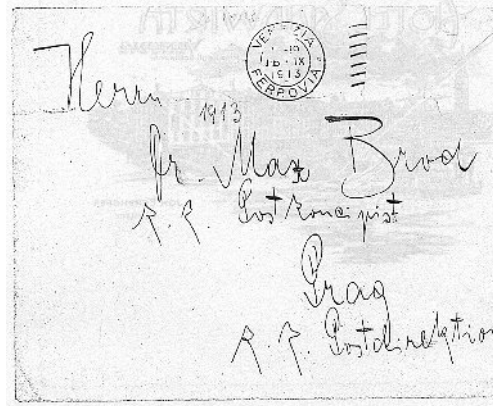 VENEZIA
16 · IX
1913
FERROVIA
Herrn
1913
Dr. Max Brod
K. K. Postkoncipist
Prag
K. K. Postdirektion